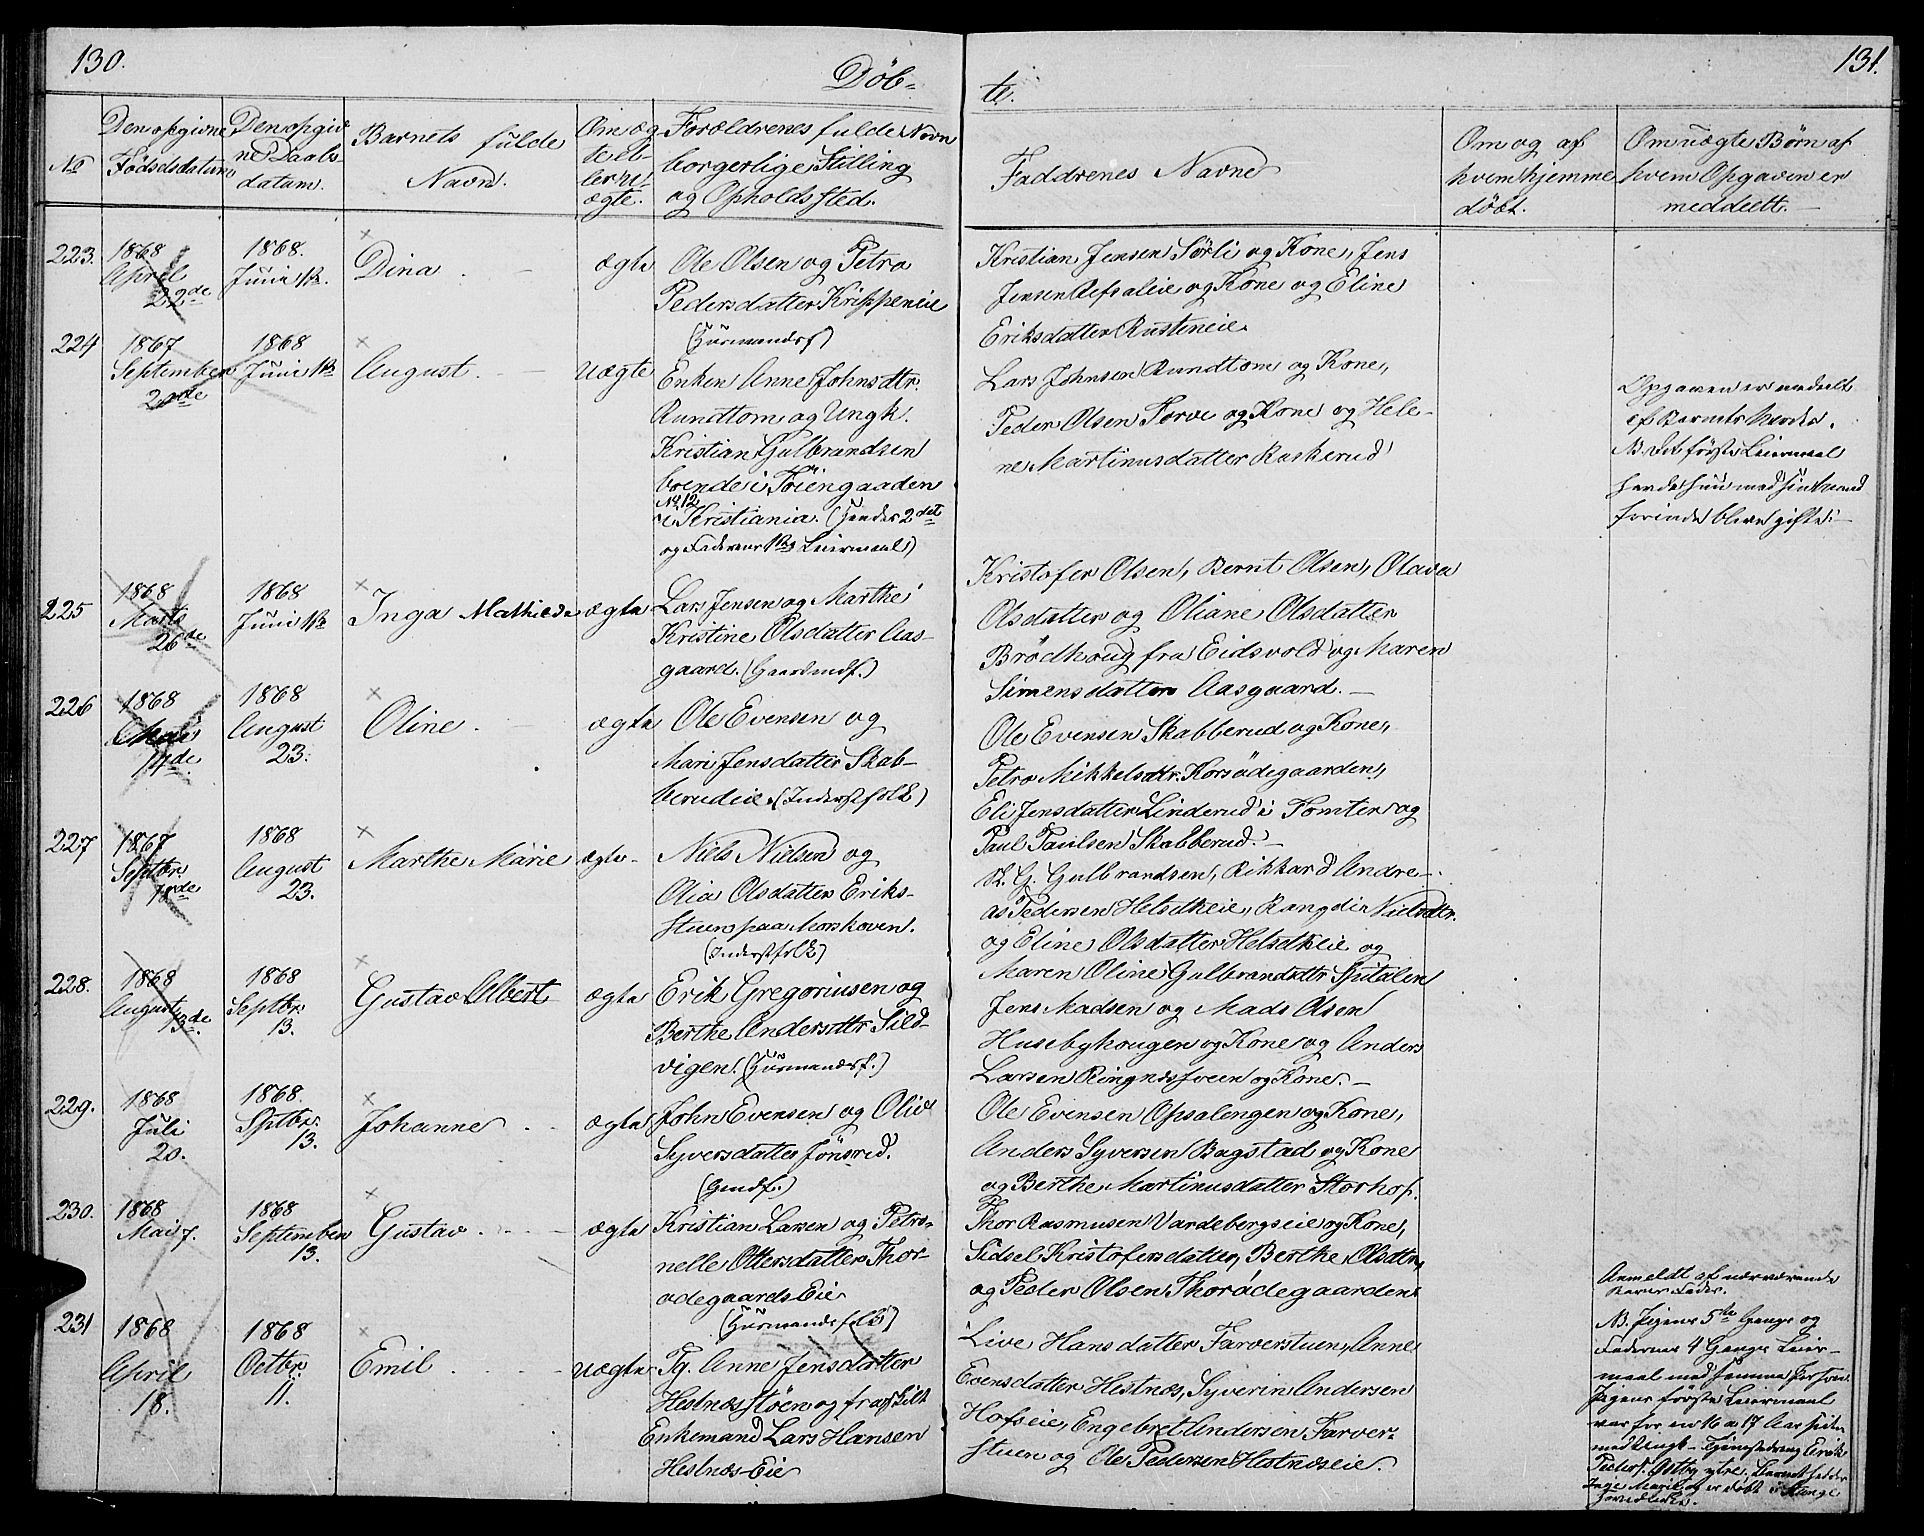 130.
131.
Døb-
te.
No
Den opgivne
Fødselsdatum
Den opgiv
ne Daabs
datum.
Barnets fulde
Navn.
Om æg
te el-
ler u-
ægte.
Forældrenes fulde Navn
borgerlige Stilling
og Opholdssted.
Faddrenes Navne
Om og af
hvem hjemme
døbt.
Om uægte Børn af
hvem Opgaven er
meddelt.
223.
1868
April
22de
1868.
Juni
Dina
ægte
Ole Olsen og Petra
Pedersdatter Krippeneie
(Huusmandsf)
Kristian Jensen Sørli og Kone, Jens
Jensen Refsaleie og Kone og Eline
Eriksdatter Rusteneie
224
1867
September
20de
1868
Juni
August.
uægte
Enken Anne Johnsdtr.
Rundtom og Ungk.
Kristian Gulbrandsen
boende i Töiengaaden
No. 12
i Kristiania. (Hendes 2det
og Faderens 1ste Leiermaal)
Lars Johnsen Rundtom og Kone,
Peder Olsen Torve og Kone og Hele-
ne Martinusdatter Raskerud
Opgaven er meddelt
af Barnets Moder.
NB. Det første Leiermaal
havde hun med sin Mand
forinden bleve gifte.
225
1868
Marts
26de
1868
Juni
Inga Mathilde
ægte
Lars Jensen og Marthe
Kristine Olsdatter Aas-
gaard. (Gaardmdf.)
Kristofer Olsen, Bernt Olsen, Olava
Olsdatter og Oliane Olsdatter
Brødhoug fra Eidsvold og Maren
Simensdatter Aasgaard.
226
1868
Mai
14de
1868
August
23.
Oline
ægte
Ole Evensen og
Mari Jensdatter Skab-
berudeie. (Inderstfolk)
Ole Evensen Skabberud og Kone,
Petra Mikkelsdtr. Korsødegaarden,
Eli Jensdatter Linderud i Tomter og
Paul Paulsen Skabberud.
227
1867
Septbr
18de
1868
August
23.
Marthe Marie
ægte
Niels Nielsen og
Olia Olsdatter Eriks-
stuen paa Morskoven.
(Inderstfolk)
K. G. Gulbrandsen, Rikkard Andre-
as Pedersen Helsetkeie, Rangdi Nielsdtr.
og Eline Olsdatter Helsetkeie og
Maren Oline Gulbrandsdtr Spitalen
228.
1868
August
13de
1868
Septbr.
13.
Gustav Albert
ægte
Erik Gregoriusen og
Berthe Andersdtr Sild-
vigen. (Huusmandsf.)
Jens Madsen og Mads Olsen
Husebyhougen og Kone og Anders
Larsen Ringnessveen og Kone.
229.
1868
Juli
20.
1868.
Sptbr.
13.
Johanne
ægte
John Evensen og Olia
Syversdatter Jönsrud.
(Gmdf.)
Ole Evensen Opsalengen og Kone,
Anders Syversen Bagstad og Kone
og Berthe Martinusdatter Storhof.
230.
1868
Mai 7.
1868
September
13.
Gustav
ægte
Kristian Larsen og Petro-
nelle Ottersdatter Thor-
ødegaards Eie
(Huusmandsfolk)
Thor Rasmusen Vardebergseie og Kone,
Sidsel Kristofersdatter, Berthe Olsdtr,
og Peder Olsen Thorødegaarden
231
1868
April
18.
1868
Octbr.
11.
Emil
uægte
Pg. Anne Jensdatter
Hestnæsstöen og fraskilt
Enkemand Lars Hansen
Hestnæs-Eie
Live Hansdatter Farverstuen, Anne
Evensdatter Hestnæs, Syverin Andersen
Hofseie, Engebret Andersen Farver-
stuen og Ole Pedersen Hestnæseie.
Anmeldt af nærværende
Barns Fader.
NB. Pigens 5te Gangs og
Faderens 4 Gangs Leier-
maal med samme Person.
Pigens første Leiermaal
var for en 16 a 17 Aar siden
med Ungk. Erik
Peders. Østby
Inge Marie og er døbt i Stange